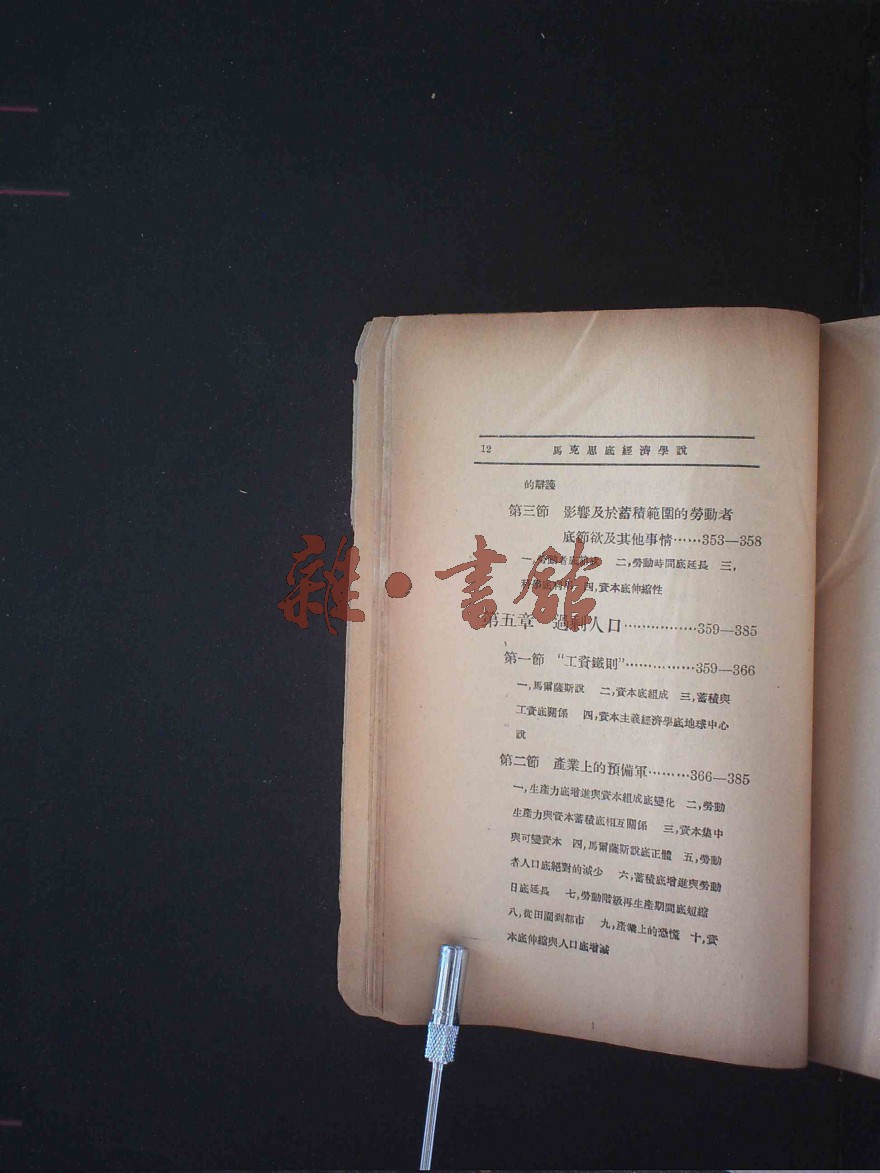 12 馬克思底經濟學說
的辯護
第三節 影響及於蓄積範圍的勞動者
底節欲及其他事情……353—358
一,勞動者底節欲 二,勞動時間底延長 三,
四,資本底伸縮性
第五章 過剩人口……………359—385
第一節 “工資鐵則”……………359—366
一,馬爾薩斯說 二,資本底組成 三,蓄積與
工資底關係 四,資本主義經濟學底地球中心
說
第二節 產業上的預備軍………366—385
一,生產力底增進與資本組成底變化 二,勞動
生產力與資本蓄積底相互關係 三,資本集中
與可變資本 四,馬爾薩斯說底正體 五,勞動
者人口底絕對的減少 六,蓄積底增進與勞動
日底延長 七,勞動階級再生產期間底短縮
八,從田園到都市 九,產業上的恐慌 十,資
本底伸縮與人口底增減
雜·書館